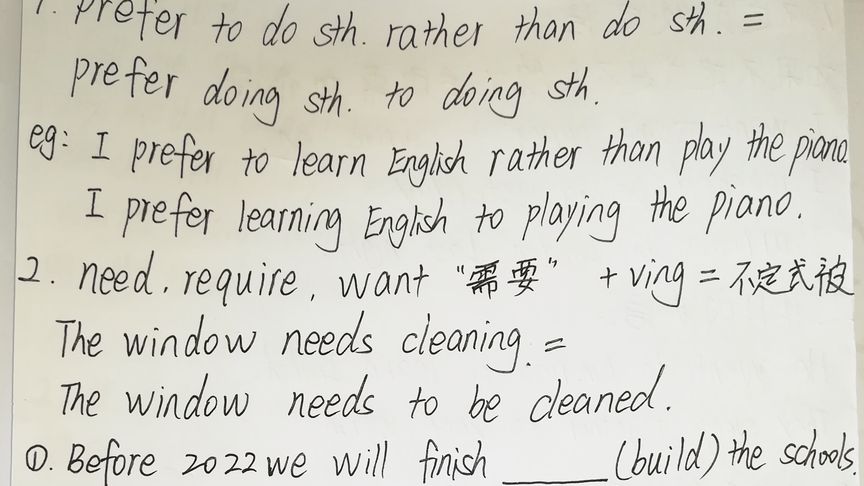 1. prefer to do sth. rather than do sth. =
prefer doing sth. to doing sth.
eg: I prefer to learn English rather than play the piano.
I prefer learning English to playing the piano.
2. need. require, want “需要” + ving = 不定式被
The window needs cleaning. =
The window needs to be cleaned.
①. Before 2022 we will finish ______ (build) the schools.